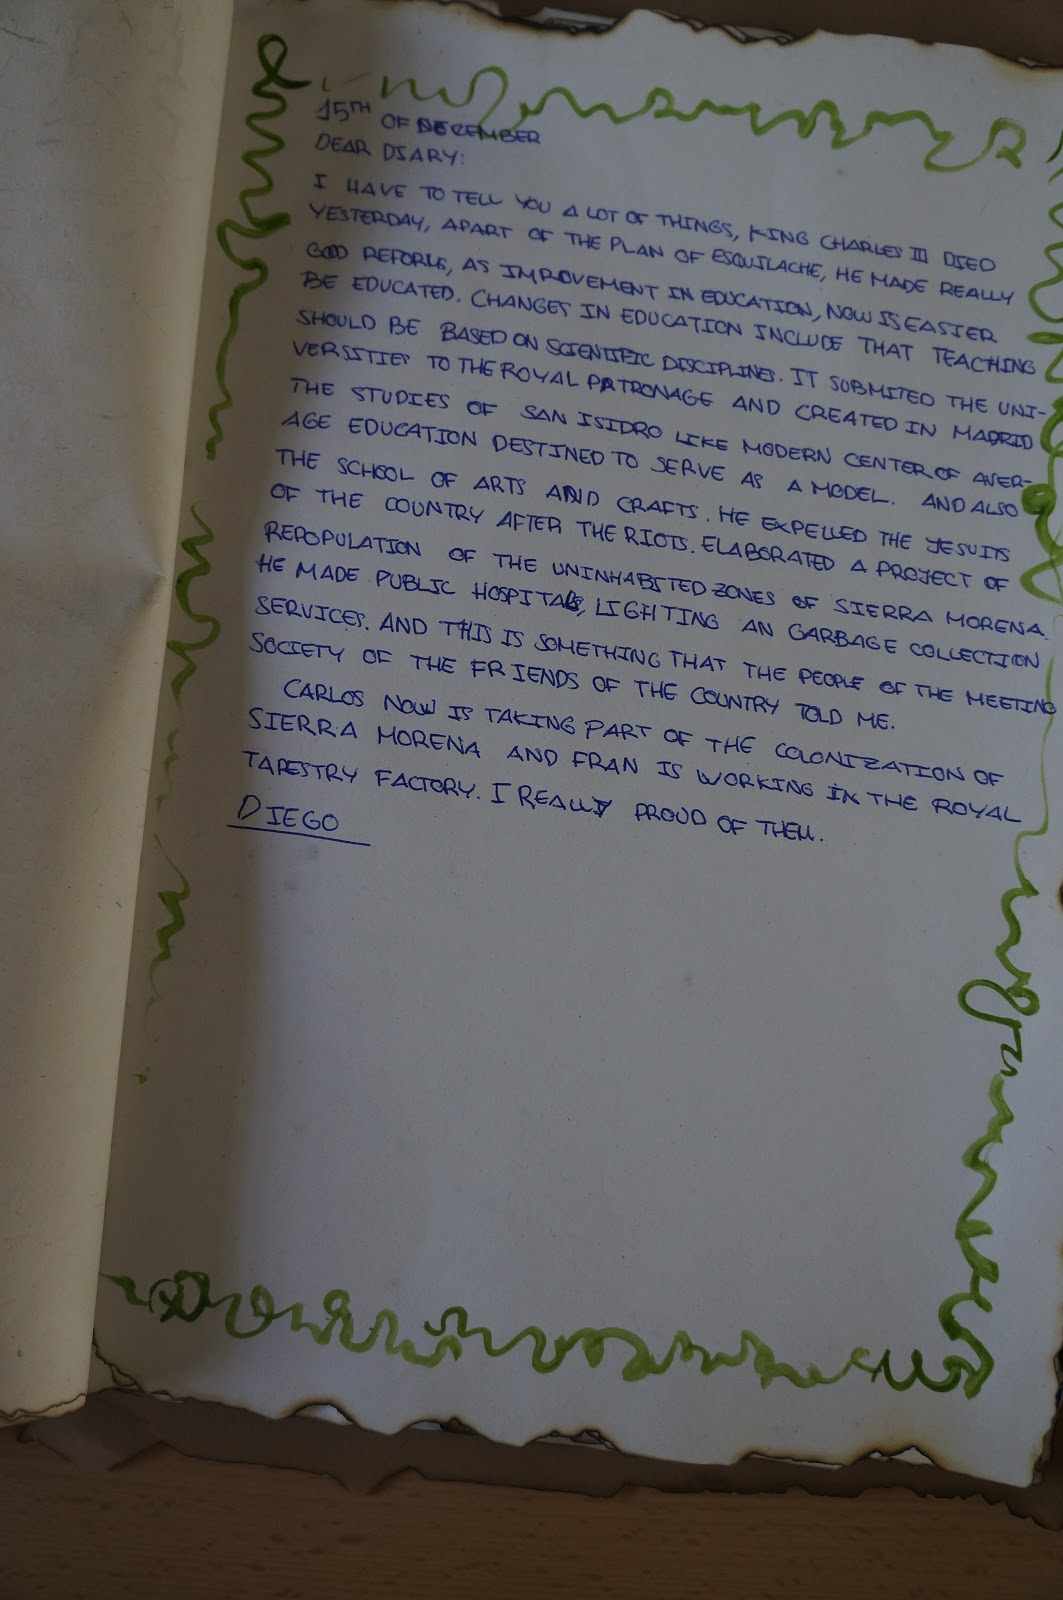 15TH OF DECEMBER
DEAR DIARY:
I HAVE TO TELL YOU A LOT OF THINGS, KING CHARLES III DIED
YESTERDAY, APART OF THE PLAN OF ESQUILACHE, HE MADE REALLY
GOOD REFORMS, AS IMPROVEMENT IN EDUCATION, NOW IS EASIER
BE EDUCATED. CHANGES IN EDUCATION INCLUDE THAT TEACHING
SHOULD BE BASED ON SCIENTIFIC DISCIPLINES. IT SUBMITED THE UNI-
VERSITIES TO THE ROYAL PATRONAGE AND CREATED IN MADRID
THE STUDIES OF SAN ISIDRO LIKE MODERN CENTER OF AVER-
AGE EDUCATION DESTINED TO SERVE AS A MODEL. AND ALSO
THE SCHOOL OF ARTS AND CRAFTS. HE EXPELLED THE JESUITS
OF THE COUNTRY AFTER THE RIOTS. ELABORATED A PROJECT OF
REPOPULATION OF THE UNINHABITED ZONES OF SIERRA MORENA.
HE MADE PUBLIC HOSPITALS, LIGHTING AN GARBAGE COLLECTION
SERVICES. AND THIS IS SOMETHING THAT THE PEOPLE OF THE MEETING
SOCIETY OF THE FRIENDS OF THE COUNTRY TOLD ME.
CARLOS NOW IS TAKING PART OF THE COLONIZATION OF
SIERRA MORENA AND FRAN IS WORKING IN THE ROYAL
TAPESTRY FACTORY. I REALLY PROUD OF THEM.
DIEGO